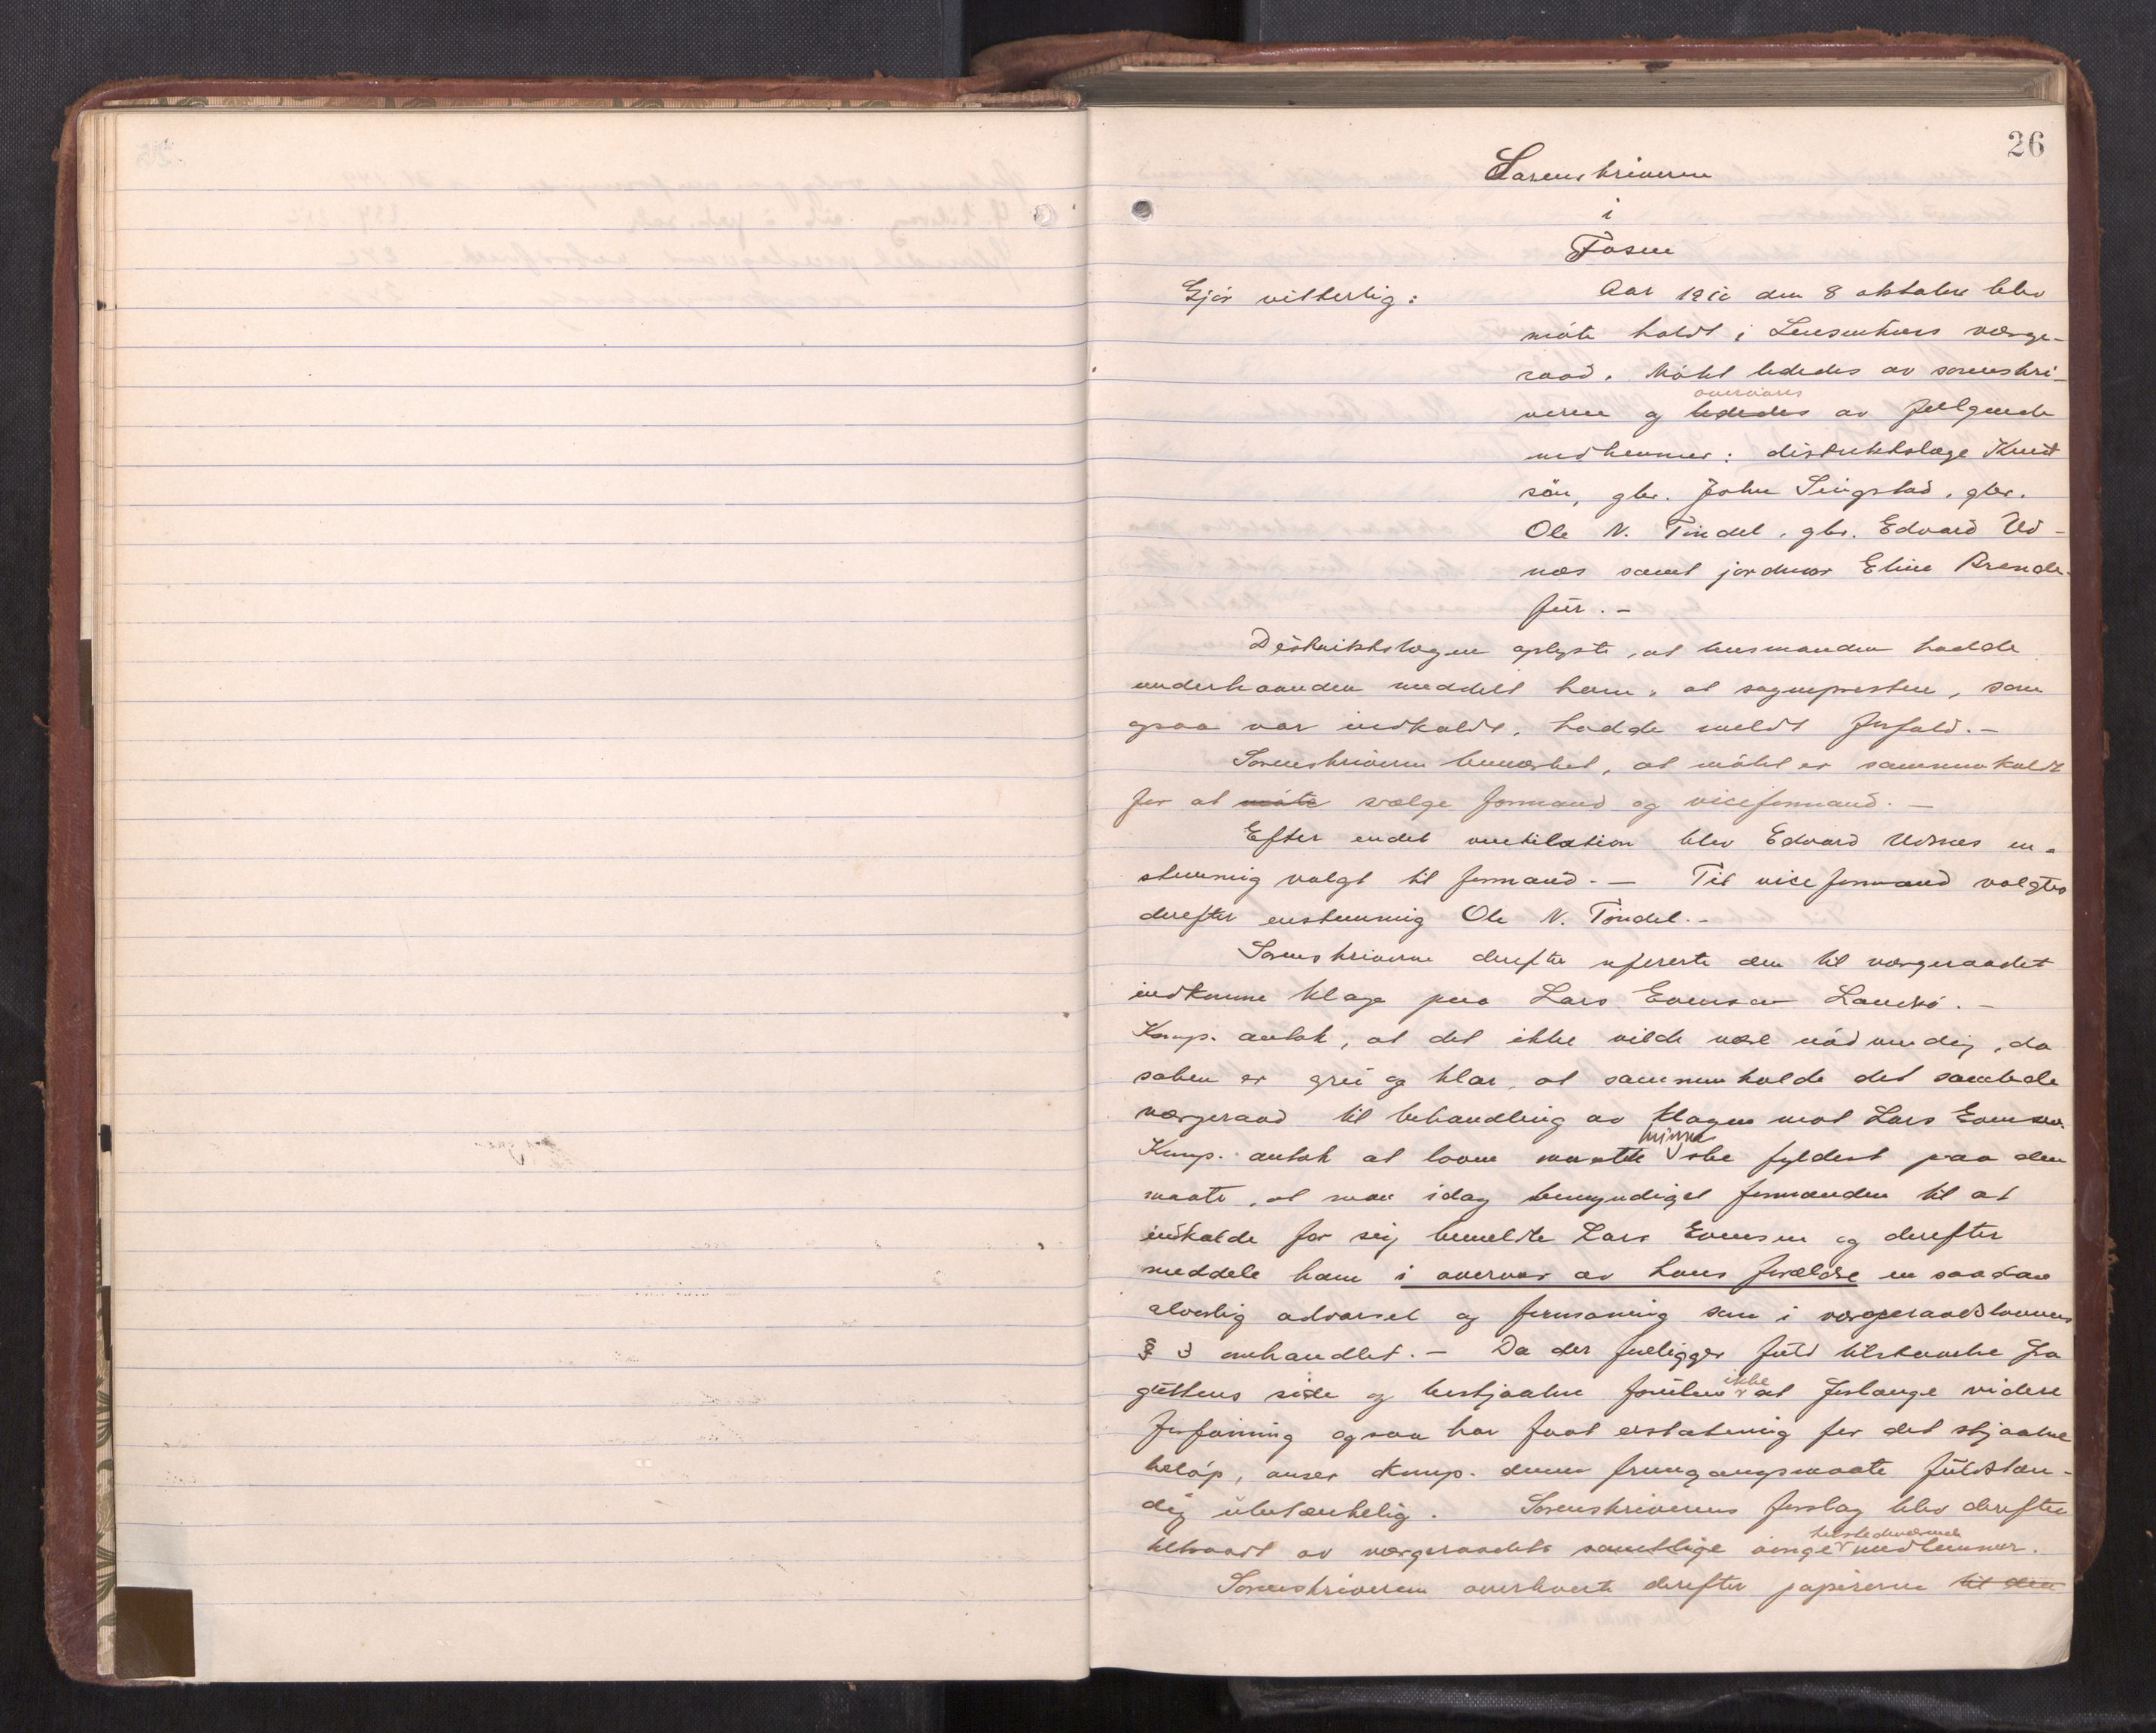 26
Sorenskriveren
i
Fosen
Gjør vitterlig: Aar 1910 den 8 oktober blev
møte holdt i Lensvikens værge-
raad. Møtet lededes av sorenskri-
veren og lededes overværes av følgende
medlemmer: distriktslæge Knut
søn, gbr. John Singstad, gbr.
Ole N. Tindel, gbr. Edvard Ud-
nes samt jordmor Eline Brende-
fur.-
Distriktslægen oplyste, at lensmanden hadde
underhaanden meddelt ham, at sognepresten, som
ogsaa var indkaldt, hadde meldt forfald.-
Sorenskriveren bemærket, at møtet er sammenkaldt
for at møte vælge formand og viceformand.-
Efter endel ventilation blev Edvard Udnes en-
stemmig valgt til formand.- Til viceformand valgtes
derefter enstemmig Ole N. Tindel.-
Sorenskriveren derefter refererte den til værgeraadet
indkomne klage paa Lars Evensen.-
Komp. antok, at det ikke vilde være nødvendig, da
saken er grei og klar, at sammenkalde det samlede
værgeraad til behandling av klagen mot Lars Evensen.
Komp. antok at loven maatte kunne ske fyldest paa den
maate, at man idag bemyndiget formanden til at
indkalde for sig bemeldte Lars Evensen og derefter
meddele ham i overvær av hans forældre en saadan
alvorlig advarsel og formaning som i værgeraadslovens
§ 3 omhandlet.- Da der foreligger fuld tilstaaelse fra
guttens side og bestjaalne foruten ikke at forlange videre
forføining ogsaa har faat erstatning for det stjaalne
beløp, anser komp. denne fremgangsmaate fuldstæn-
dig ubetænkelig. Sorenskriverens forslag blev derefter
tiltraadt av værgeraadets samtlige øvrige tilstedeværende medlemmer.
Sorenskriveren overleverte derefter papirerne til den